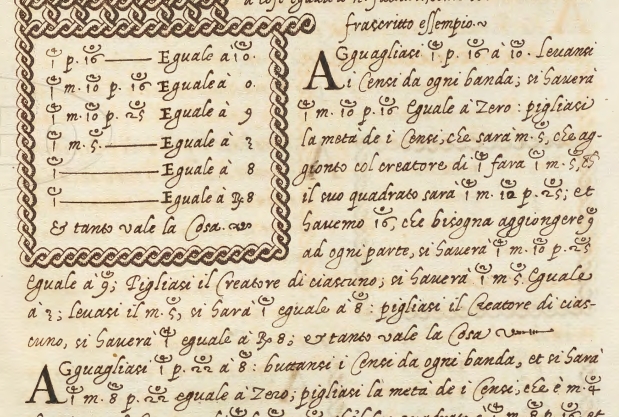 à cose eguale
frascritto essempio.
1 p. 16 Eguale à 10.
1 m. 10 p. 16 Eguale à 0.
1 m. 10 p. 25 Eguale à 9
1 m. 5 Eguale à 3
1 Eguale à 8
1 Eguale à R 8
Et tanto vale la Cosa.
Agguagliasi 1 p. 16 à 10. Levansi
i Censi da ogni banda; si haverà
1 m. 10 p. 16 Eguale à Zero: pigliasi
la metà de i Censi, che sarà m. 5, che ag-
gionto col creatore di 1 farà 1 m. 5, et
il suo quadrato sarà 1 m. 10 p. 25; et
havemo 16, che bisogna aggiongere 9
ad ogni parte, si haverà 1 m. 10 p. 25
Eguale à 9; Pigliasi il Creatore di ciascuno; si haverà 1 m. 5 Eguale
à 3; levasi il m. 5, si harà 1 eguale à 8: pigliasi il Creatore di cias-
cuno, si haverà 1 eguale à R 8; et tanto vale la Cosa
Agguagliasi 1 p. 22 à 8: buttansi i Censi da ogni banda, et si harà
1 m. 8 p. 22 eguale à Zero; pigliasi la metà de i Censi, che è m. 4